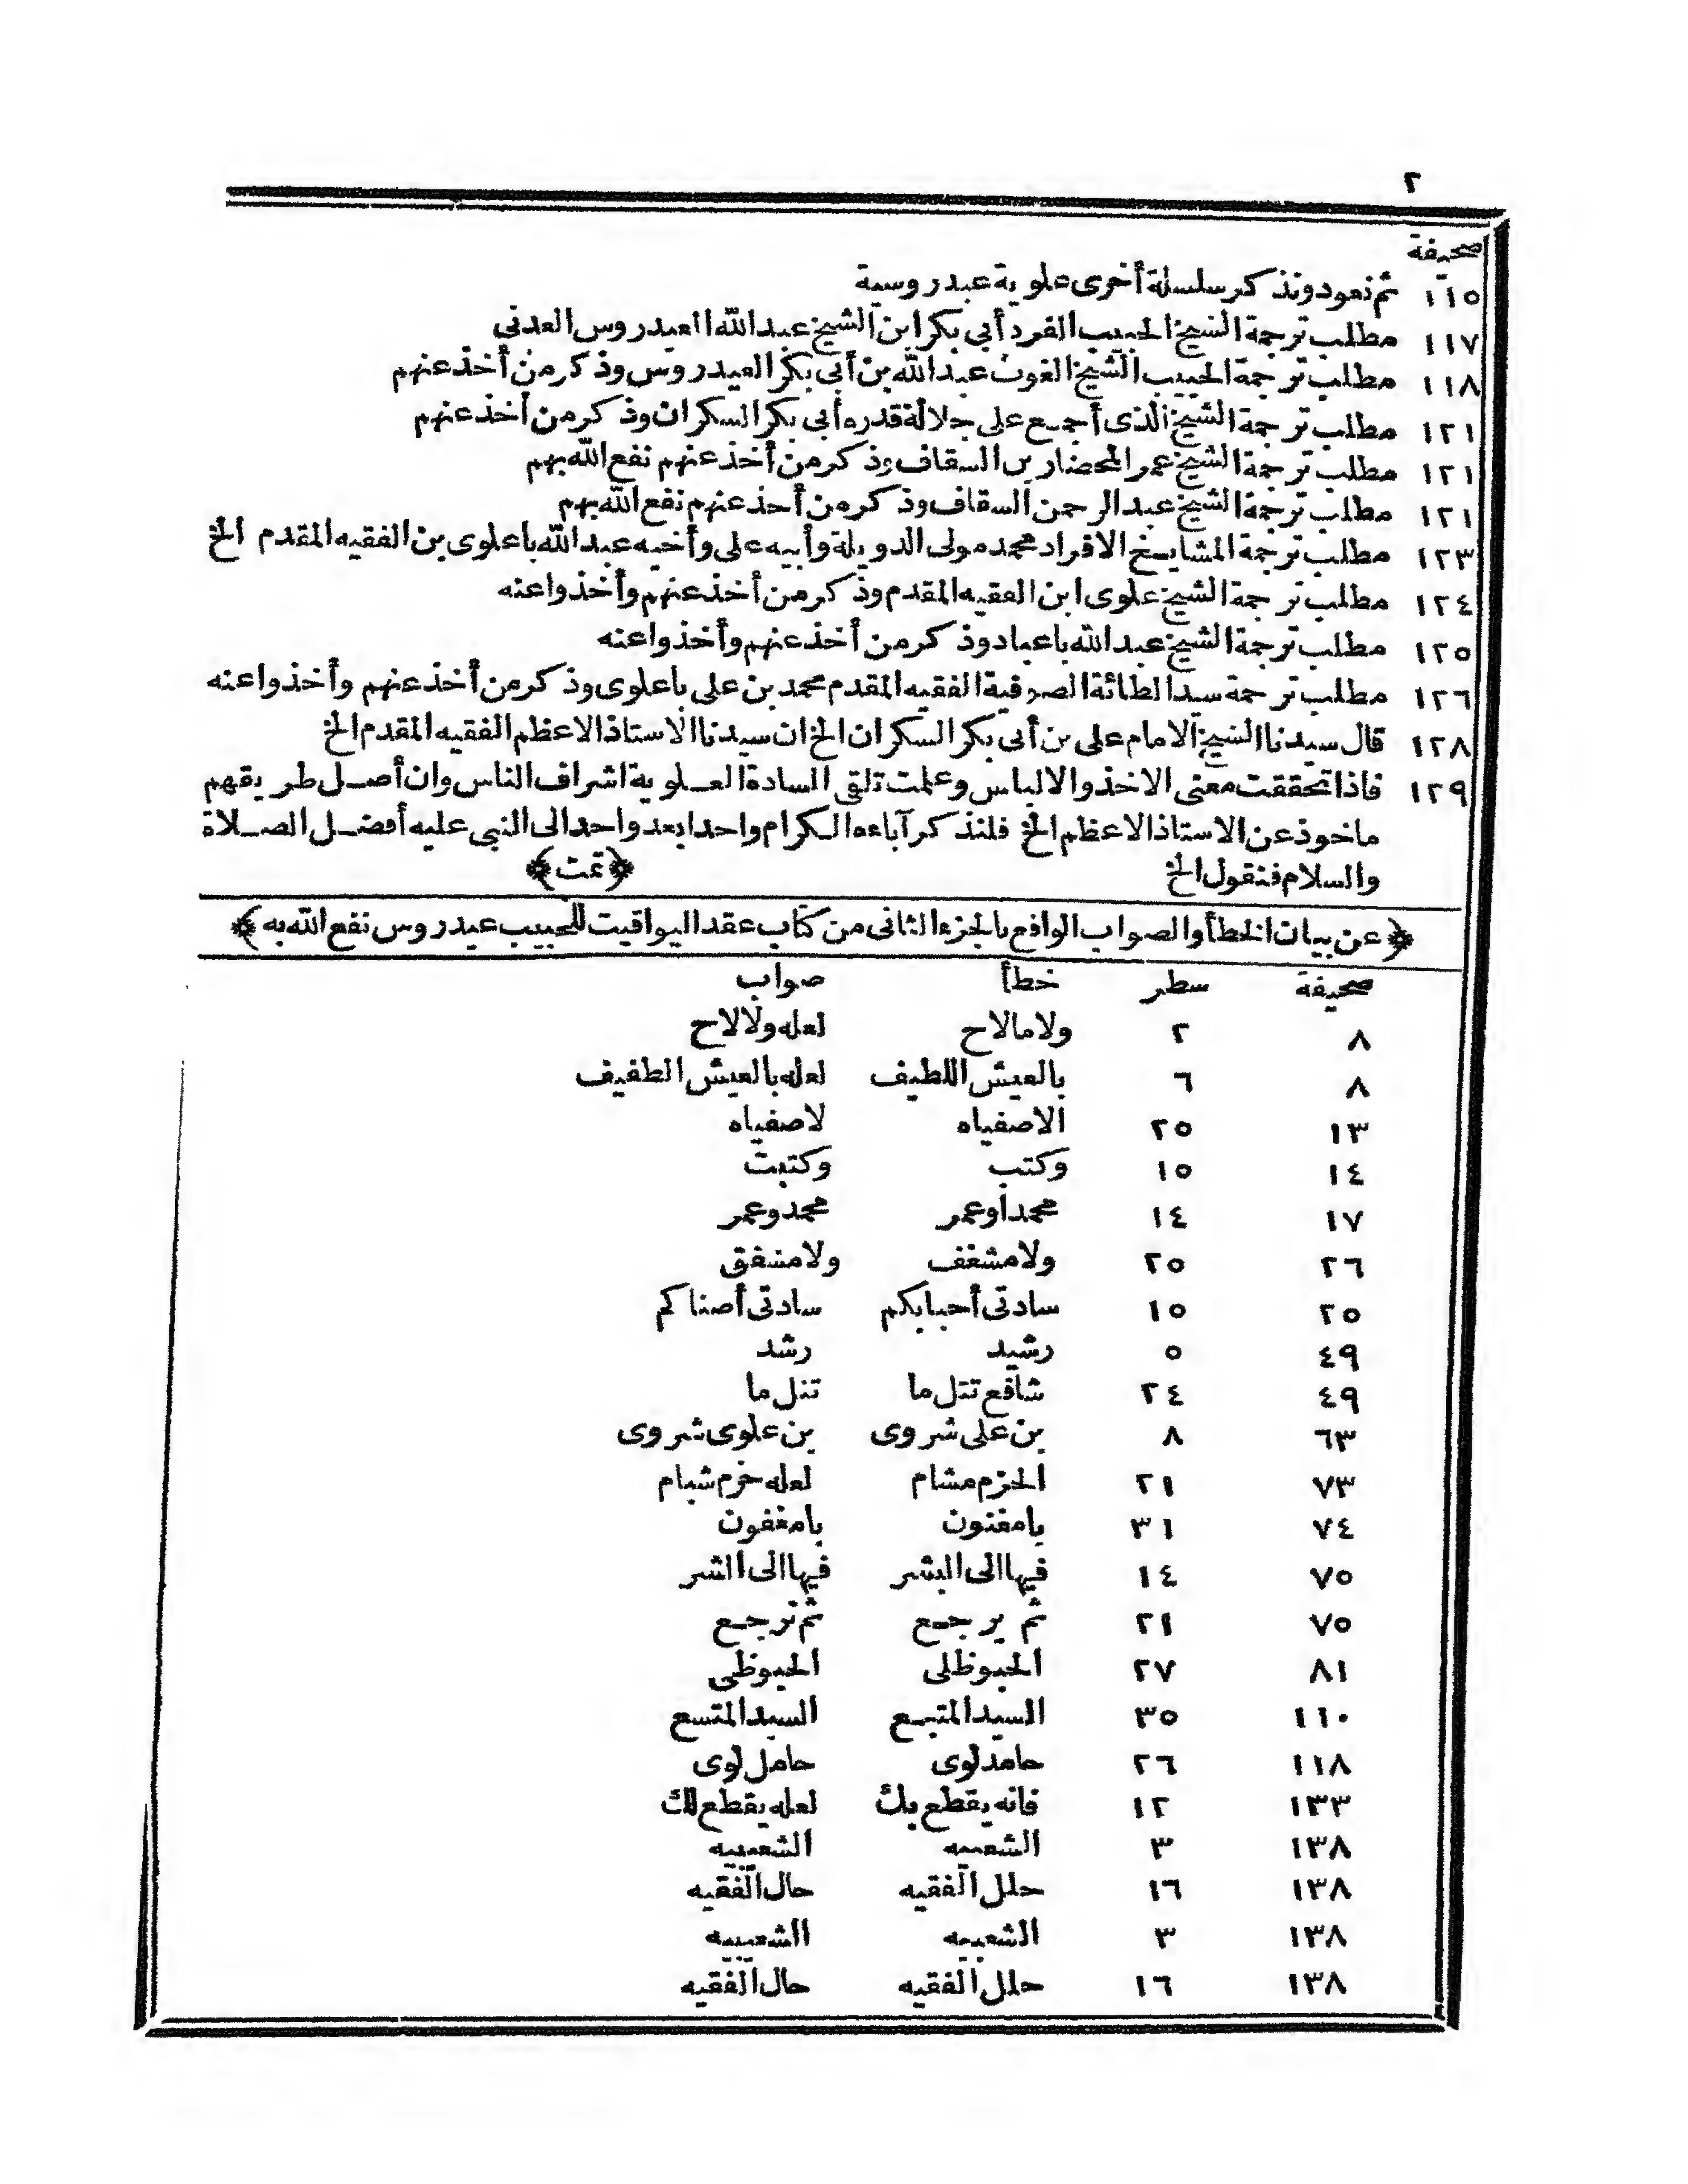 ٢
صحيفة
١١٥ ثم نعود ونذكر سلسلة أخرى علوية عيدروسية
١١٧ مطلب ترجمة الشيخ الحبيب الفرد أبي بكر ابن الشيخ عبد الله العيدروس العدني
١١٨ مطلب ترجمة الحبيب الشيخ الغوث عبد الله بن أبي بكر العيدروس وذكر من أخذ عنهم
١٢١ مطلب ترجمة الشيخ الذى أجمع على جلالة قدره أبي بكر السكران وذكر من أخذ عنهم
١٢١ مطلب ترجمة الشيخ عمر المحضار بن السقاف وذكر من أخذ عنهم نفع الله بهم
١٢١ مطلب ترجمة الشيخ عبد الرحمن السقاف وذكر من أخذ عنهم نفع الله بهم
١٢٣ مطلب ترجمة المشايخ الافراد محمد مولى الدويلة وأبيه على وأخيه عبد الله باعلوى بن الفقيه المقدم الخ
١٢٤ مطلب ترجمة الشيخ علوى ابن الفقيه المقدم وذكر من أخذ عنهم وأخذوا عنه
١٢٥ مطلب ترجمة الشيخ عبد الله باعباد وذكر من أخذ عنهم وأخذوا عنه
١٢٦ مطلب ترجمة سيد الطائفة الصوفية الفقيه المقدم محمد بن على باعلوى وذكر من أخذ عنهم وأخذوا عنه
١٢٨ قال سيدنا الشيخ الامام على بن أبى بكر السكران الخ ان سيدنا الاستاذ الاعظم الفقيه المقدم الخ
١٢٩ فاذا تحققت معنى الاخذ والالباس وعلمت تلقى السادة العلوية اشراف الناس وان أصل طريقهم
ماخوذ عن الاستاذ الاعظم الخ فلنذكر آباءه الكرام واحدا بعد واحد الى النبى عليه أفضل الصلاة
والسلام فنقول الخ ﴿تمت﴾
﴿عن بيان الخطأ والصواب الواقع بالجزء الثانى من كتاب عقد اليواقيت للحبيب عيدروس نفع الله به﴾
صحيفة سطر خطأ صواب
٨ ٢ ولامالاح لعله ولالاح
٨ ٦ بالعيش اللطيف لعله بالعيش الطفيف
١٣ ٢٥ الاصفياه لاصفياه
١٤ ١٥ وكتب وكتبت
١٧ ١٤ محمد اوعمر محمد وعمر
٢٦ ٢٥ ولا مشغف ولا منفق
٢٥ ١٥ سادتى أحبابكم سادتى أصناكم
٤٩ ٥ رشيد رشد
٤٩ ٢٤ شافع تتل ما تنل ما
٦٣ ٨ بن على شروى بن علوى شروى
٧٣ ٢١ الخزم مشام لعله خزم شبام
٧٤ ٣١ بامغنون بامغفون
٧٥ ١٤ فيها الى البشر فيها الى الشر
٧٥ ٢١ ثم يرجع ثم ترجع
٨١ ٢٧ الحبوظلى الحبوظى
١١٠ ٣٥ السيد المتبع السيد المتسع
١١٨ ٢٦ حامد لوى حامل لوى
١٣٣ ١٢ فانه يقطع بك لعله يقطع لك
١٣٨ ٣ الشعيبيه
١٣٨ ١٦ حلل الفقيه حال الفقيه
١٣٨ ٣ الشعيبيه
١٣٨ ١٦ حلل الفقيه حال الفقيه